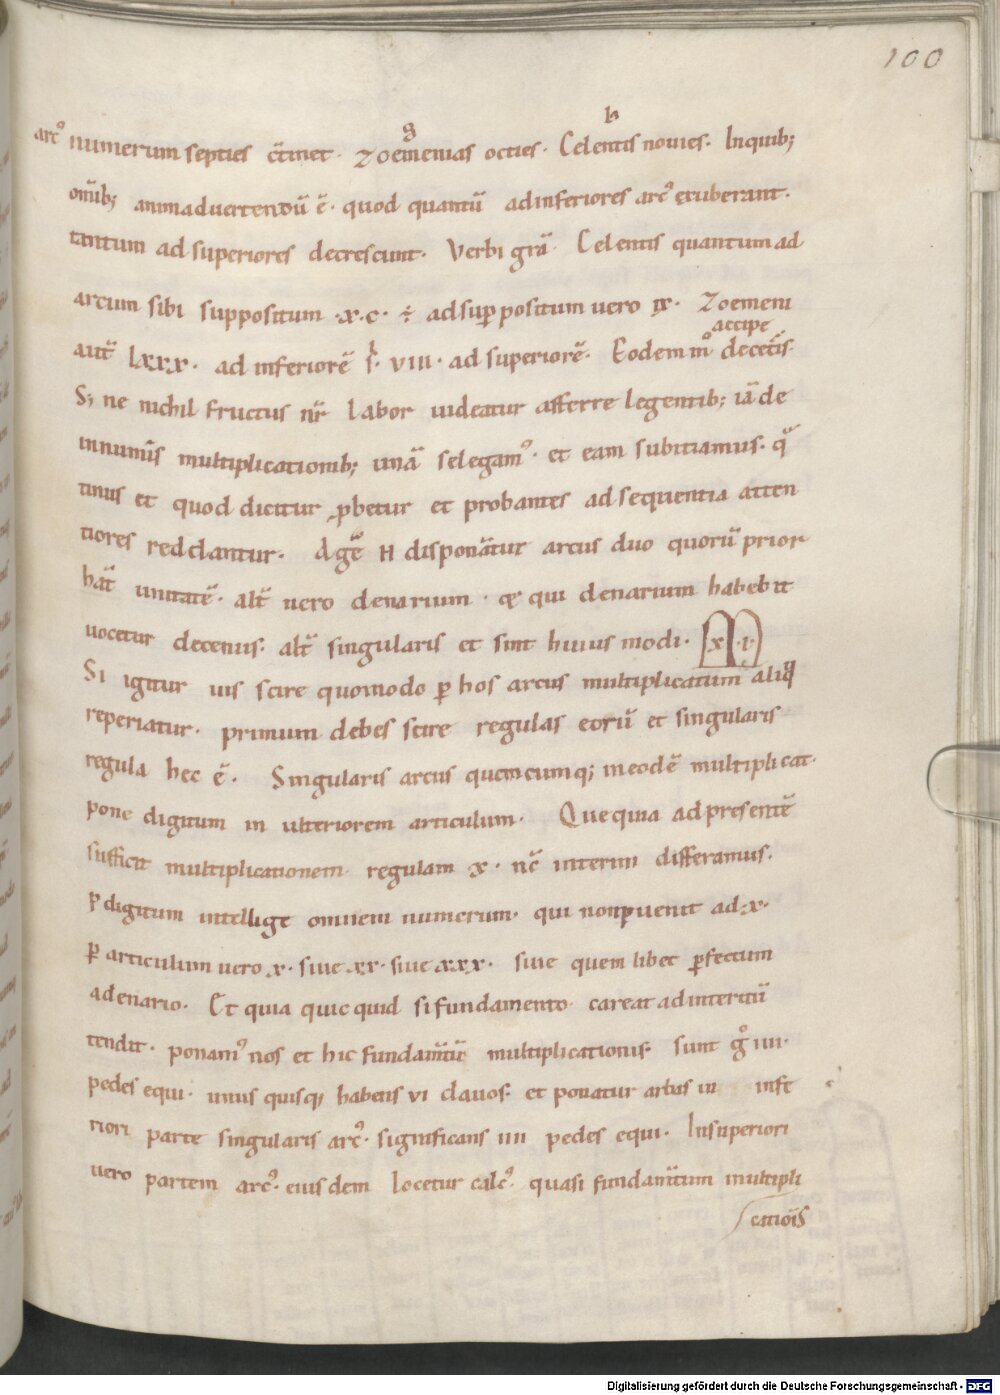 100
arc⁹ numerum septies c̄tinet · Zoemenias octies · Celentis novies. Inquib;
g h
omīb; animadvertendū ē · quod quantū adinferiores arc⁹ exuberant.
tantum ad superiores decrescunt. Verbi grā Celentis quantum ad
arcum sibi suppositum ·x·c· ÷ ad sup positum vero ix · Zoemeni
accipe
aut̄ lxxx · ad inferiorē · viii · ad superiorē · Eodem m̊ decetis
S; ne nichil fructus nr̄ labor uideatur afferre legentib; iā de
innumis multiplicationib; unā selegam⁹ · et eam subitiamus · q
tinus et quod dicitur ꝓbetur et probantes ad sequentia atten
tiores reddantur. Agē N disponātur arcus duo quorū prior
hāt unitatē · alt̄ uero denarium · & qui denarium habebit
uocetur decenus · alt̄ singularis et sint huius modi · x · i ·
Si igitur uis scire quomodo p̄ hos arcus multiplicatum aliq
reperiatur · primum debes scire regulas eorū et singularis
regula hec ē. Singularis arcus quemcumq; in eodē multiplicat.
pone digitum in ulteriorem articulum. Que quia ad presentē
sufficit multiplicationem regulam x · nc̄ interim differamus.
P digitum intellige omnem numerum · qui non puenit ad · x ·
p̄ articulum uero x · siue xx · siue xxx · siue quem libet p̄fectum
a denario. Et quia quic quid si fundamento careat ad interitū
tendit · ponam⁹ nos et hic fundam̄tū multiplicationis · sunt g̊ iiii ·
pedes equi · unus quisq; habens vi clavos · et ponatur arbas in infe
riori parte singularis arc⁹ · significans iiii pedes equi · In superiori
uero partem arc⁹ · eius dem locetur calc⁹ · quasi fundam̄tum multipli
catiōis
Digitalisierung gefördert durch die Deutsche Forschungsgemeinschaft - DFG